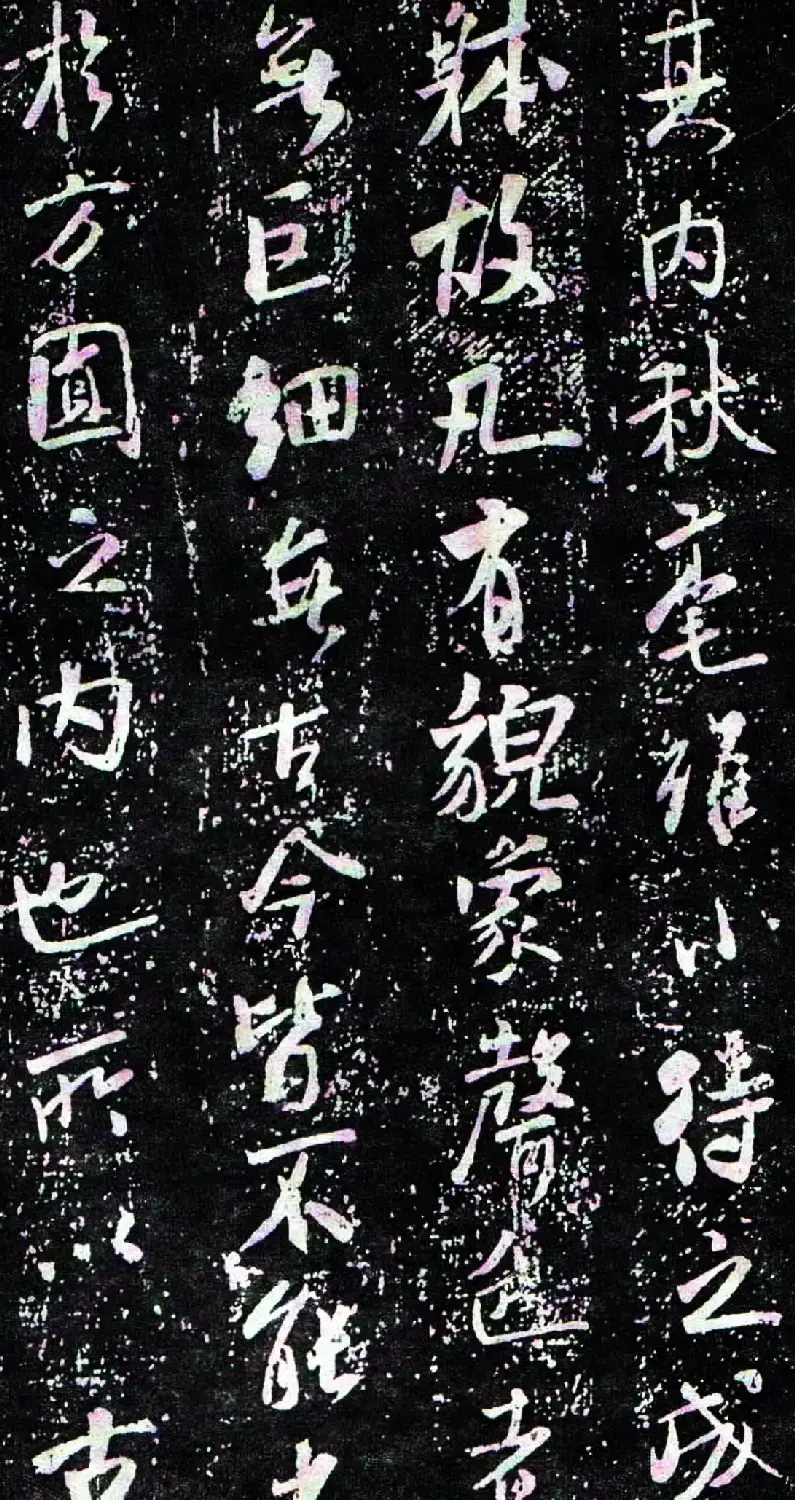 其内秋毫雖小待之成
躰故凡有貌象聲色者
無巨細無古今皆不能
於方圓之内也所以古